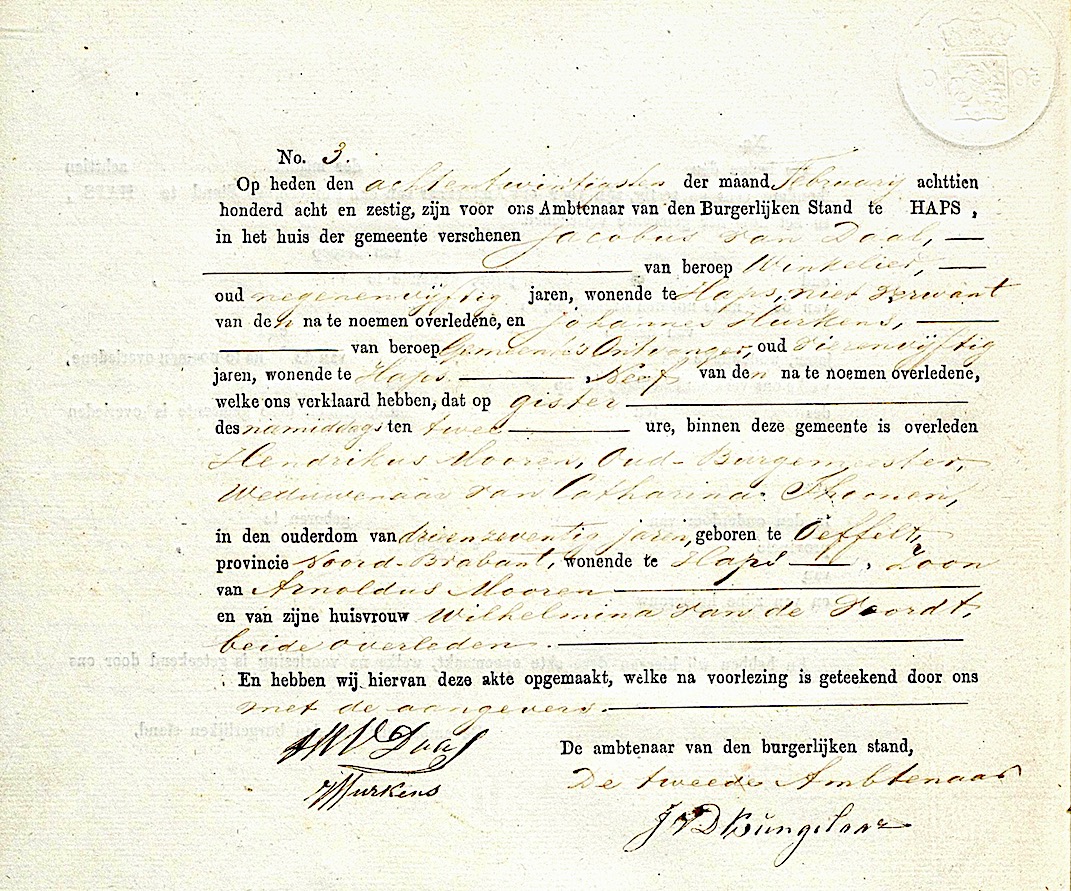 No. 3.
Op heden den achtentwintigsten der maand Februarij achttien
honderd acht en zestig, zijn voor ons Ambtenaar van den Burgerlijken Stand te HAPS,
in het huis der gemeente verschenen Jacobus van Daal,
van beroep Winkelier,
oud negenenvijftig jaren, wonende te Haps, niet verwant
van den na te noemen overledene, en Johannes Hurkens,
van beroep Gemeente's Ontvanger, oud vierenvijftig
jaren, wonende te Haps, Neef van den na te noemen overledene,
welke ons verklaard hebben, dat op gister
des namiddags ten twee ure, binnen deze gemeente is overleden
Hendrikus Mooren, Oud-Burgemeester,
Weduwenaar van Catharina Thoonen,
in den ouderdom van drieenzeventig jaren, geboren te Oeffelt,
provincie Noord-Brabant, wonende te Haps, zoon
van Arnoldus Mooren
en van zijne huisvrouw Wilhelmina van de Voordt,
beide overleden.
En hebben wij hiervan deze akte opgemaakt, welke na voorlezing is geteekend door ons
met de aangevers.
V Daal
De ambtenaar van den burgerlijken stand,
De tweede Ambtenaar
Hurkens